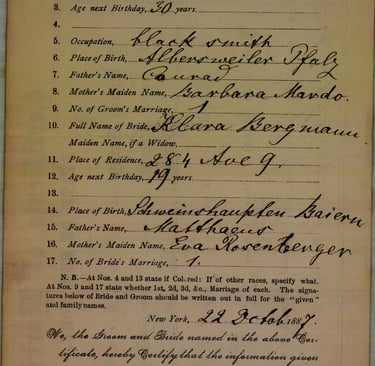 3. Age next Birthday, 30 years.
4.
5. Occupation, black smith
6. Place of Birth, Albersweiler Pfalz
7. Father's Name, Conrad
8. Mother's Maiden Name, Barbara Mardo.
9. No. of Groom's Marriage, 1
10. Full Name of Bride, Klara Bergmann
Maiden Name, if a Widow,
11. Place of Residence, 284 Ave 9.
12. Age next Birthday, 19 years.
13.
14. Place of Birth, Schweinshaupten Baiern
15. Father's Name, Matthaeus
16. Mother's Maiden Name, Eva Rosenberger
17. No. of Bride's Marriage, 1.
N. B.—At Nos. 4 and 13 state if Colored; If of other races, specify what.
At Nos. 9 and 17 state whether 1st, 2d, 3d, &c., Marriage of each. The signa-
tures below of Bride and Groom should be written out in full for the "given"
and family names.
New York, 22 Octob 1887.
We, the Groom and Bride named in the above Cer-
tificate, hereby Certify that the information given